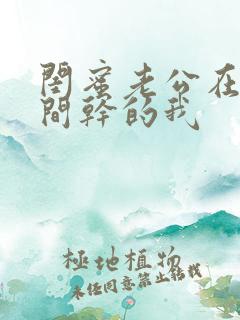 閨蜜老公在
間幹的我
極地植物
未经同意禁止转载